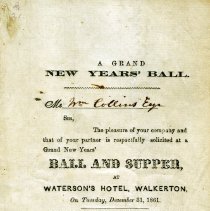 A GRAND
NEW YEARS' BALL.
Mr Wm Collins Esqr
SIR,
The pleasure of your company and
that of your partner is respectfully solicited at a
Grand New Years'
BALL AND SUPPER,
AT
WATERSON'S HOTEL, WALKERTON,
On Tuesday, December 31, 1861.